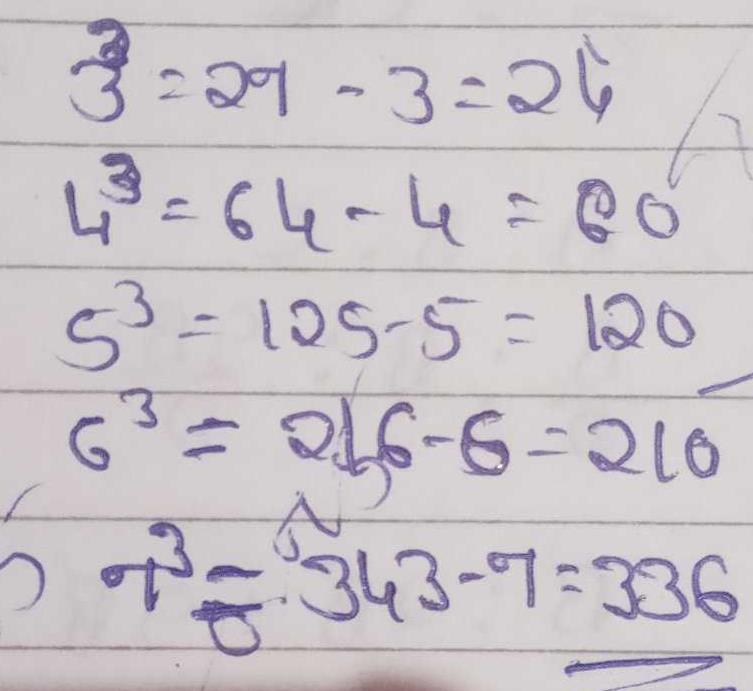 3³ = 27 - 3 = 24
4³ = 64 - 4 = 60
5³ = 125 - 5 = 120
6³ = 216 - 6 = 210
7³ = 343 - 7 = 336